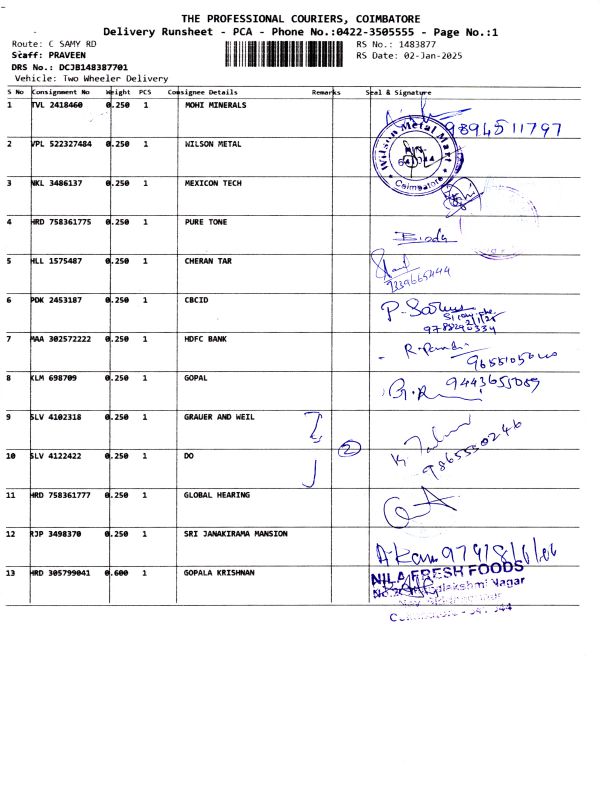 THE PROFESSIONAL COURIERS, COIMBATORE
Delivery Runsheet - PCA - Phone No.:0422-3505555 - Page No.:1
Route: C SAMY RD
RS No.: 1483877
Staff: PRAVEEN
RS Date: 02-Jan-2025
DRS No.: DCJB148387701
Vehicle: Two Wheeler Delivery
S No Consignment No Weight PCS Consignee Details Remarks Seal & Signature
1 TVL 2418460 0.250 1 MOHI MINERALS
9894511797
2 VPL 522327484 0.250 1 WILSON METAL
Wilson Metal Mart
Coimbatore
3 NKL 3486137 0.250 1 MEXICON TECH
4 HRD 758361775 0.250 1 PURE TONE
5 HLL 1575487 0.250 1 CHERAN TAR
6 PDK 2453187 0.250 1 CBCID
2/1/25
7 MAA 302572222 0.250 1 HDFC BANK
8 KLM 698709 0.250 1 GOPAL
9443655089
9 SLV 4102318 0.250 1 GRAUER AND WEIL
2
9865530246
10 SLV 4122422 0.250 1 DO
11 HRD 758361777 0.250 1 GLOBAL HEARING
12 RJP 3498370 0.250 1 SRI JANAKIRAMA MANSION
13 HRD 305799041 0.600 1 GOPALA KRISHNAN
NILA FRESH FOODS
Nagar